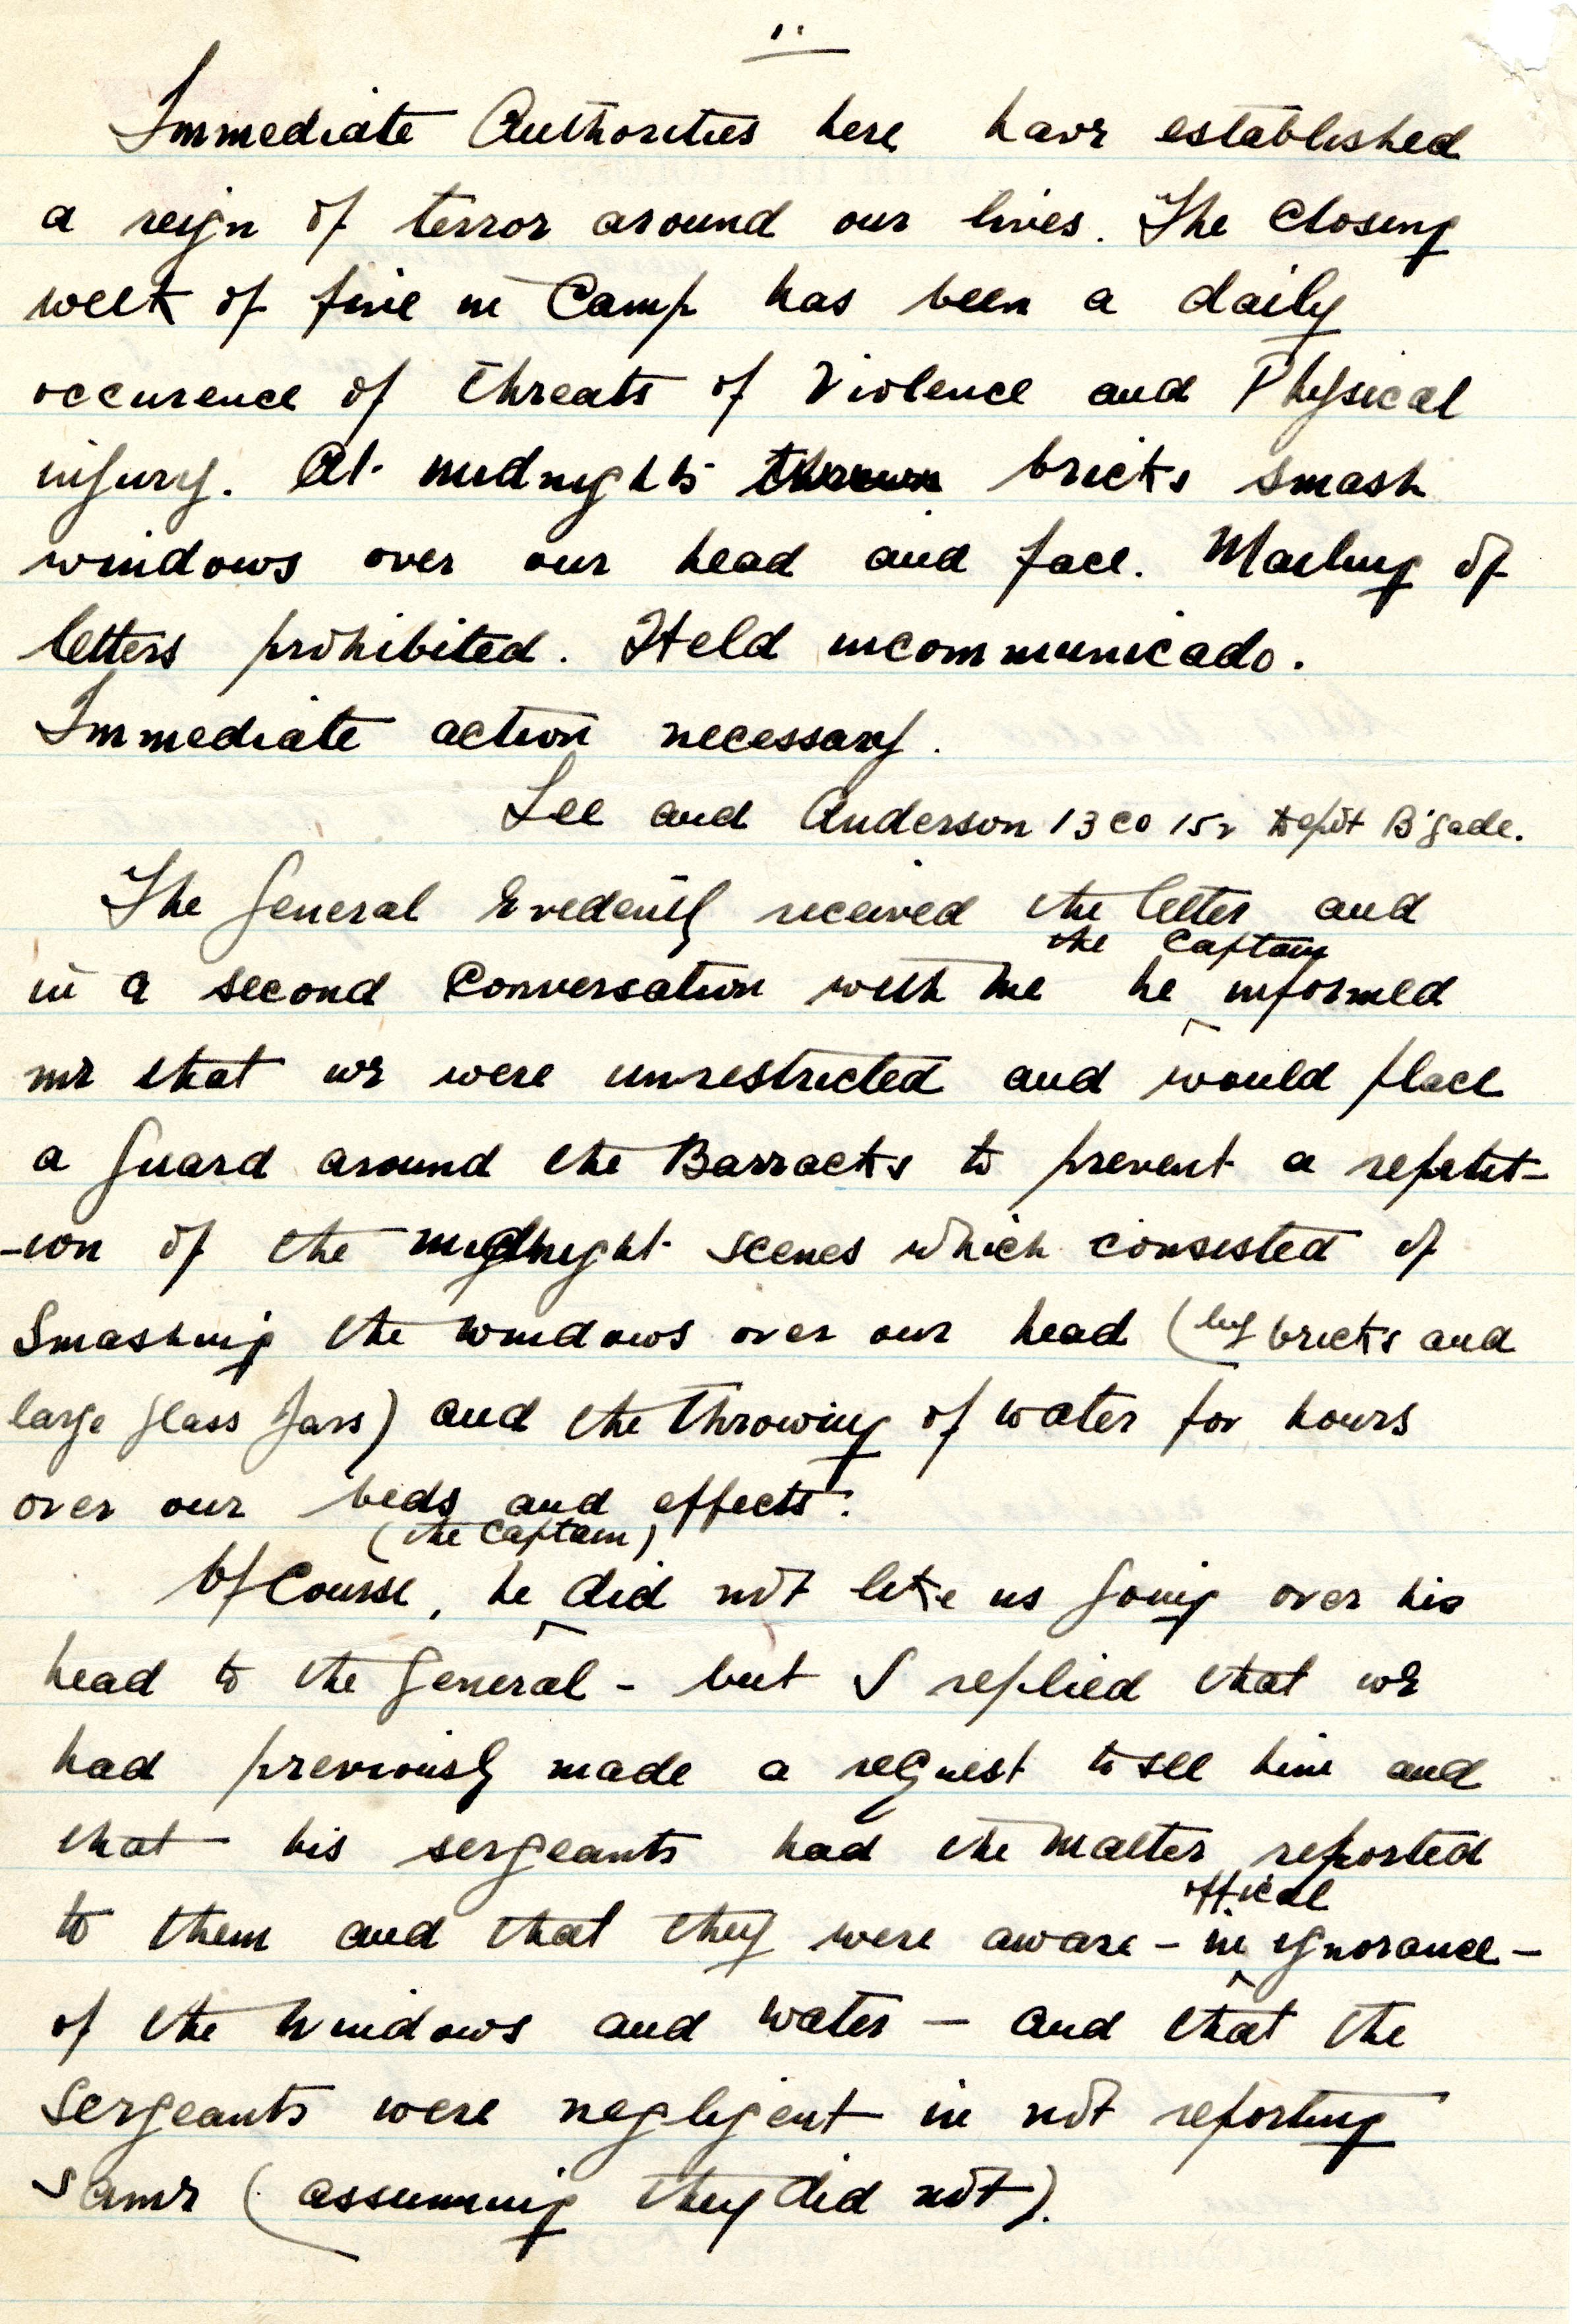 11.
Immediate Authorities here have established
a reign of terror around our lives. The closing
week of five in Camp has been a daily
occurence of threats of Violence and Physical
injury. At midnights thrown bricks smash
windows over our head and face. Mailing of
letters prohibited. Held incommunicado.
Immediate action necessary.
Lee and Anderson 13 Co 152 Depot B'gade.
The General Evidently received the letter and
the Captain
in a second Conversation with me he informed
me that we were unrestricted and would place
a guard around the Barracks to prevent a repetit-
-ion of the midnight scenes which consisted of
Smashing the windows over our head (by bricks and
large glass Jars) and the throwing of water for hours
over our beds and effects.
(the Captain)
Of Course, he did not like us going over his
head to the General - but I replied that we
had previously made a request to see him and
that his sergeants had the matter reported
offical
to them and that they were aware - in ignorance -
of the windows and water - and that the
Sergeants were negligent in not reporting
same (assuming they did not).